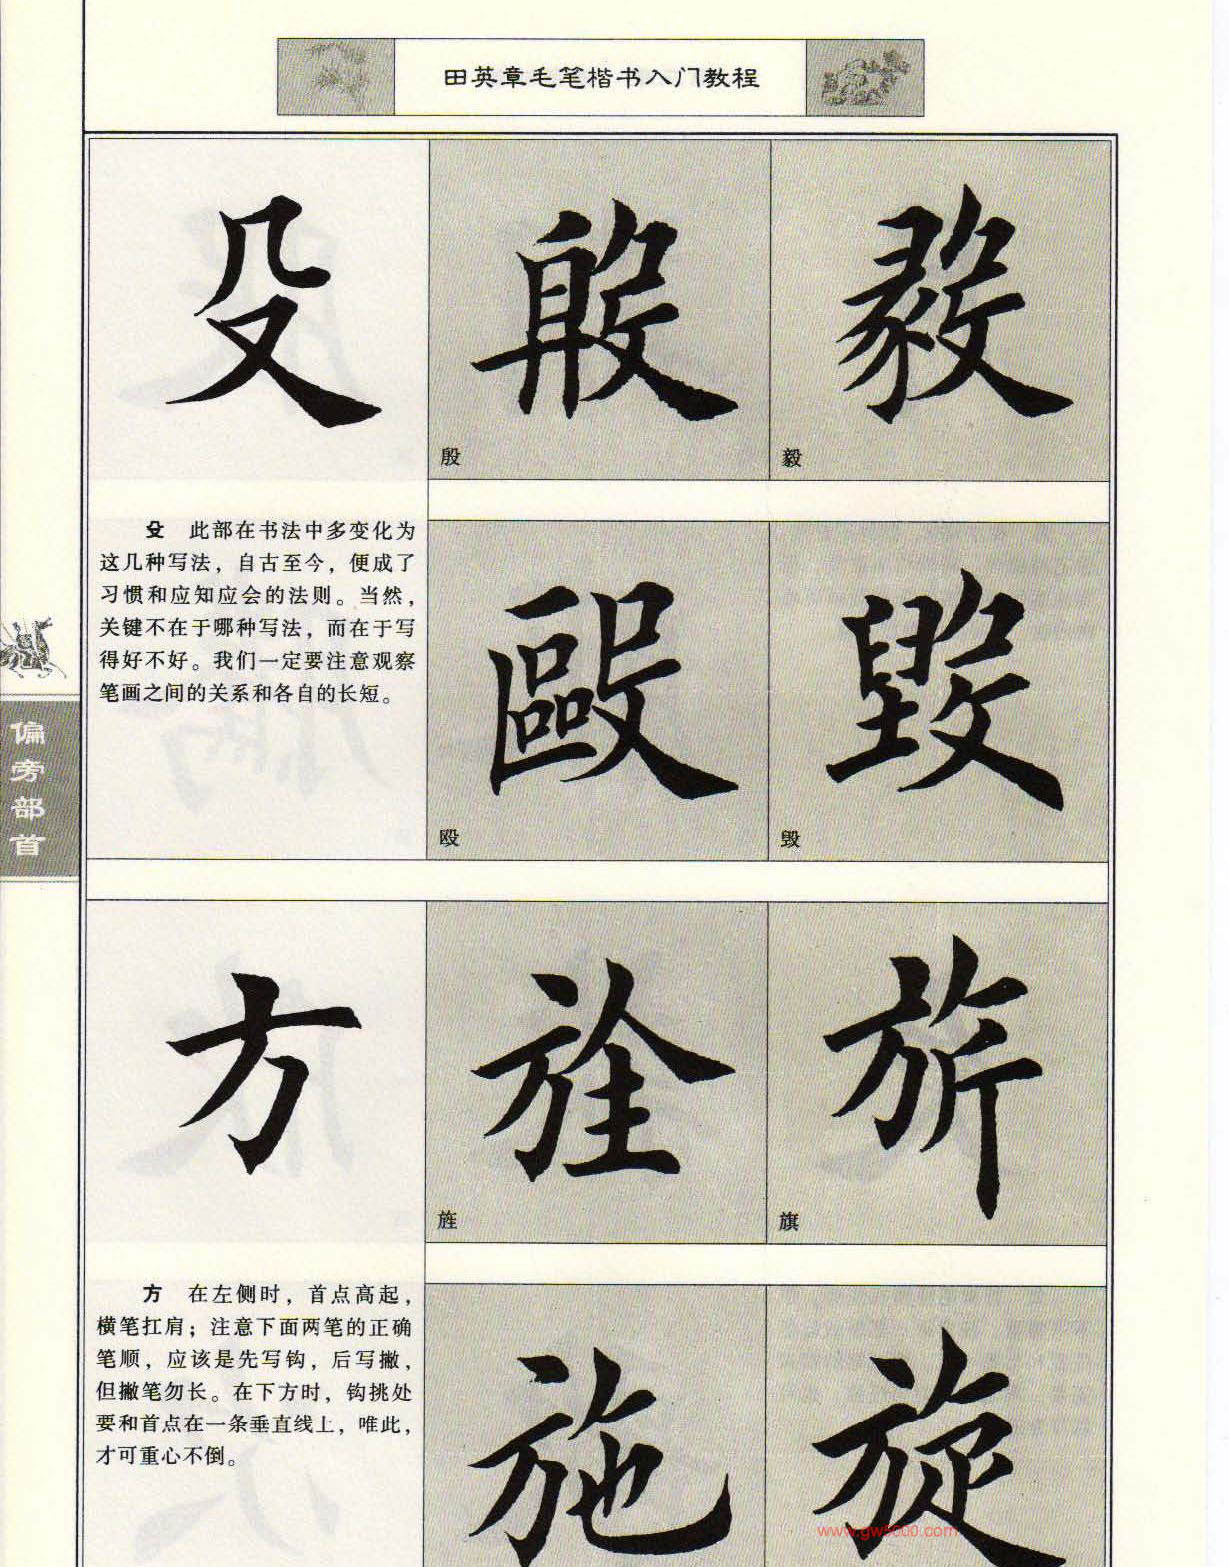 田英章毛笔楷书入门教程
殳
殷
毅
殷
毅
殳 此部在书法中多变化为
这几种写法，自古至今，便成了
习惯和应知应会的法则。当然，
关键不在于哪种写法，而在于写
得好不好。我们一定要注意观察
笔画之间的关系和各自的长短。
毆
毁
殴
毁
偏旁部首
方
旌
旂
旌
旗
方 在左侧时，首点高起，
横笔扛肩；注意下面两笔的正确
笔顺，应该是先写钩，后写撇，
但撇笔勿长。在下方时，钩挑处
要和首点在一条垂直线上，唯此，
才可重心不倒。
施
旋
www.gw5000.com